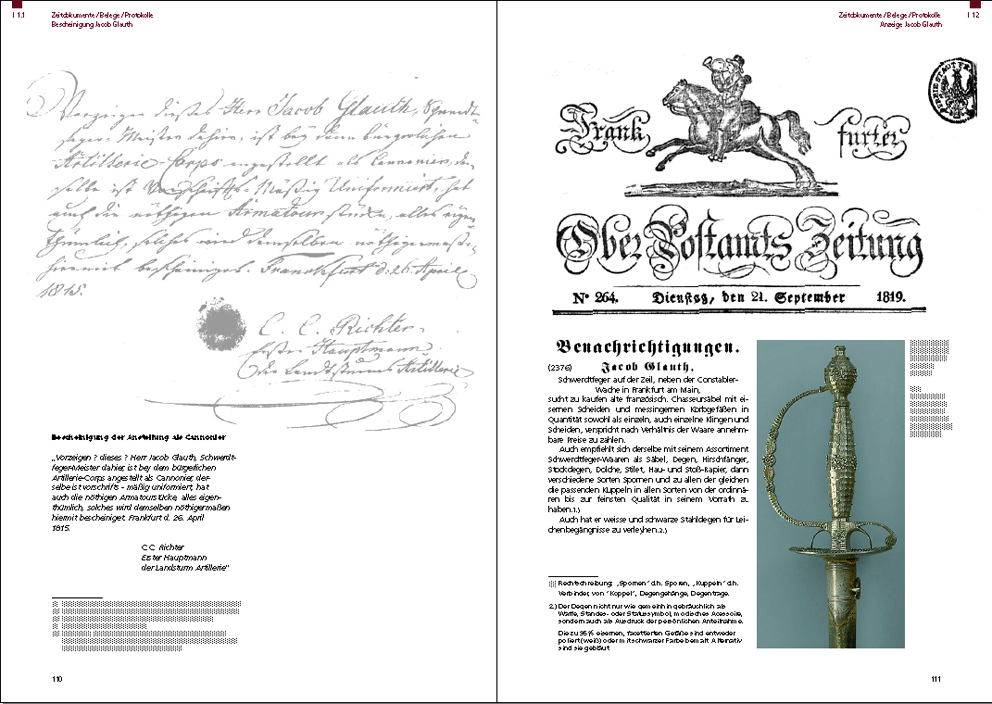 I 1.1
Zeitdokumente/Belege/Protokolle
Bescheinigung Jacob Glauth
Vorzeiger dieses Herr Jacob Glauth, Schwerdt-
feger-Meister dahier, ist bey dem bürgerlichen
Artillerie-Corps angestellt als Cannonier, der-
selbe ist Vorschrifts-Mäßig Uniformirt, hat
auch die nöthigen Armatourstücke, alles eigen-
thümlich, solches wird demselben nöthigermaßen
hiermit bescheiniget. Franckfurt d. 26. April
1815.
C. C. Richter
Erster Hauptmann
der Landsturms Artillerie
Bescheinigung der Anstellung als Cannonier
„Vorzeigen ? dieses ? Herr Jacob Glauth, Schwerdt-
feger-Meister dahier, ist bey dem bürgerlichen
Artillerie-Corps angestellt als Cannonier, der-
selbe ist vorschrifts - mäßig uniformiert, hat
auch die nöthigen Armatourstücke, alles eigen-
thümlich, solches wird demselben nöthigermaßen
hiermit bescheiniget. Frankfurt d. 26. April
1815.
C.C. Richter
Erster Hauptmann
der Landsturm Artillerie“
110
Zeitdokumente/Belege/Protokolle
Anzeige Jacob Glauth
I 12
Frankfurter
Ober Postamts Zeitung
N° 264. Dienstag, den 21. September 1819.
Benachrichtigungen.
(2376) Jacob Glauth,
Schwerdtfeger auf der Zeil, neben der Constabler-
Wache in Frankfurt am Main,
sucht zu kaufen alte französisch. Chasseursäbel mit ei-
sernen Scheiden und messingernen Korbgefäßen in
Quantität sowohl als einzeln, auch einzelne Klingen und
Scheiden, verspricht nach Verhältnis der Waare annehm-
bare Preise zu zahlen.
Auch empfiehlt sich derselbe mit seinem Assortiment
Schwerdtfeger-Waaren als Säbel, Degen, Hirschfänger,
Stockdegen, Dolche, Stilet, Hau- und Stoß-Rapier, dann
verschiedene Sorten Spornen und zu allen der gleichen
die passenden Kuppeln in allen Sorten von der ordinnä-
ren bis zur feinsten Qualität in seinem Vorrath zu
haben.1.)
Auch hat er weisse und schwarze Stahldegen für Lei-
chenbegängnisse zu verleyhen.2.)
Rechtschreibung: „Spornen“ d.h. Sporen, „Kuppeln“ d.h.
Verbinder, von "Koppel", Degengehänge, Degentrage.
2.) Der Degen nicht nur wie gemeinhin gebräuchlich als
Waffe, Standes- oder Statussymbol, modisches Acessoile,
sondern auch als Ausdruck der persönlichen Anteilnahme.
Die zu 95% eisernen, facettierten Gefäße sind entweder
poliert (weiß) oder mit schwarzer Farbe bemalt. Alternativ
sind sie gebläut
111